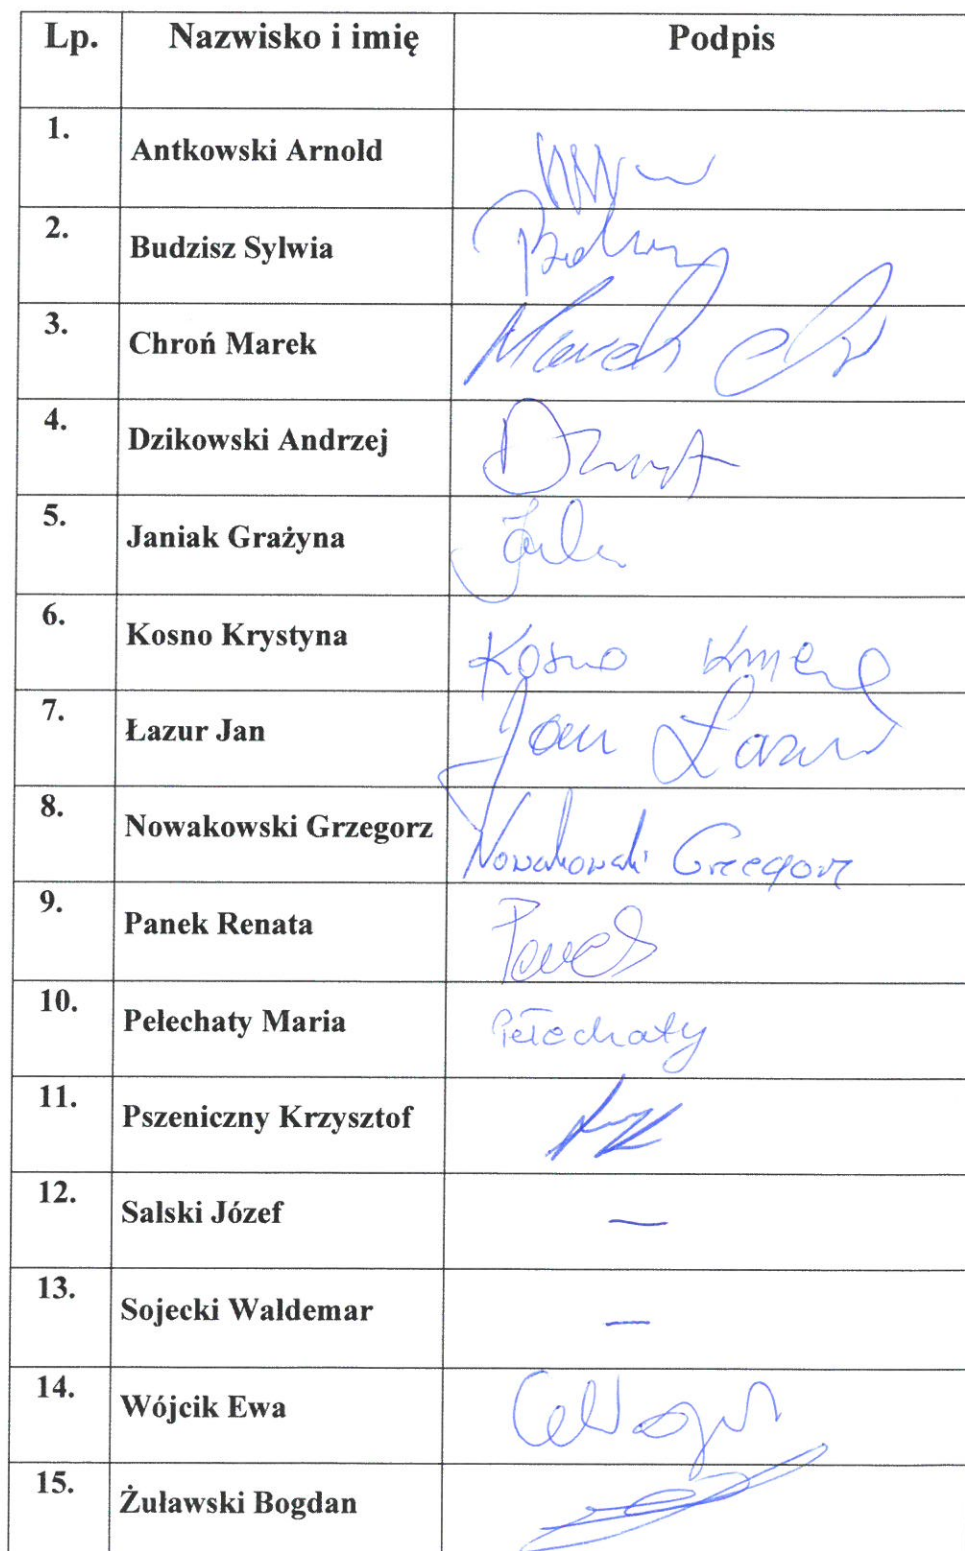 Lp. Nazwisko i imię Podpis
1. Antkowski Arnold
2. Budzisz Sylwia
3. Chroń Marek Marek
4. Dzikowski Andrzej
5. Janiak Grażyna
6. Kosno Krystyna Kosno
7. Łazur Jan Jan Łazur
8. Nowakowski Grzegorz Nowakowski Grzegorz
9. Panek Renata Panek
10. Pelechaty Maria Pełechaty
11. Pszeniczny Krzysztof
12. Salski Józef —
13. Sojecki Waldemar —
14. Wójcik Ewa
15. Żuławski Bogdan